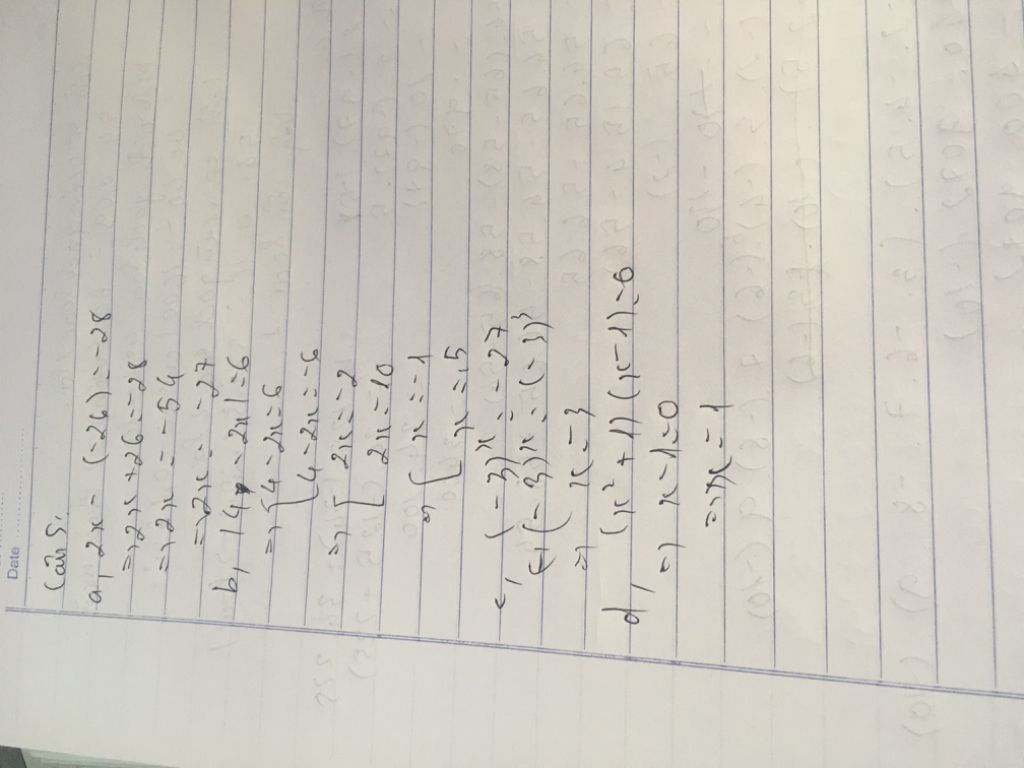 Date
Câu 5,
a, 2x - (-26) = -28
=> 2x + 26 = -28
=> 2x = -54
=> 2x = -27
b, |4 - 2x| = 6
=> [4 - 2x = 6
[4 - 2x = -6
=> [2x = -2
[2x = 10
=> [x = -1
[x = 5
c, (-3)^x = -27
(-3)^x = (-3)^3
=> x = 3
d, (x² + 1)(x - 1) = 0
=> x - 1 = 0
=> x = 1